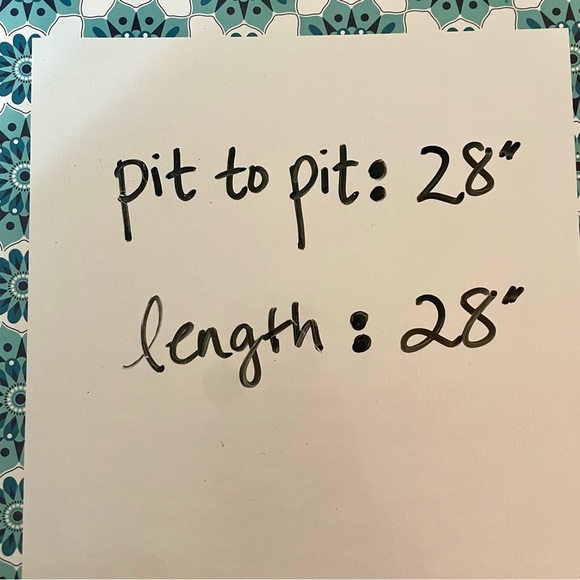 pit to pit: 28"
length: 28"